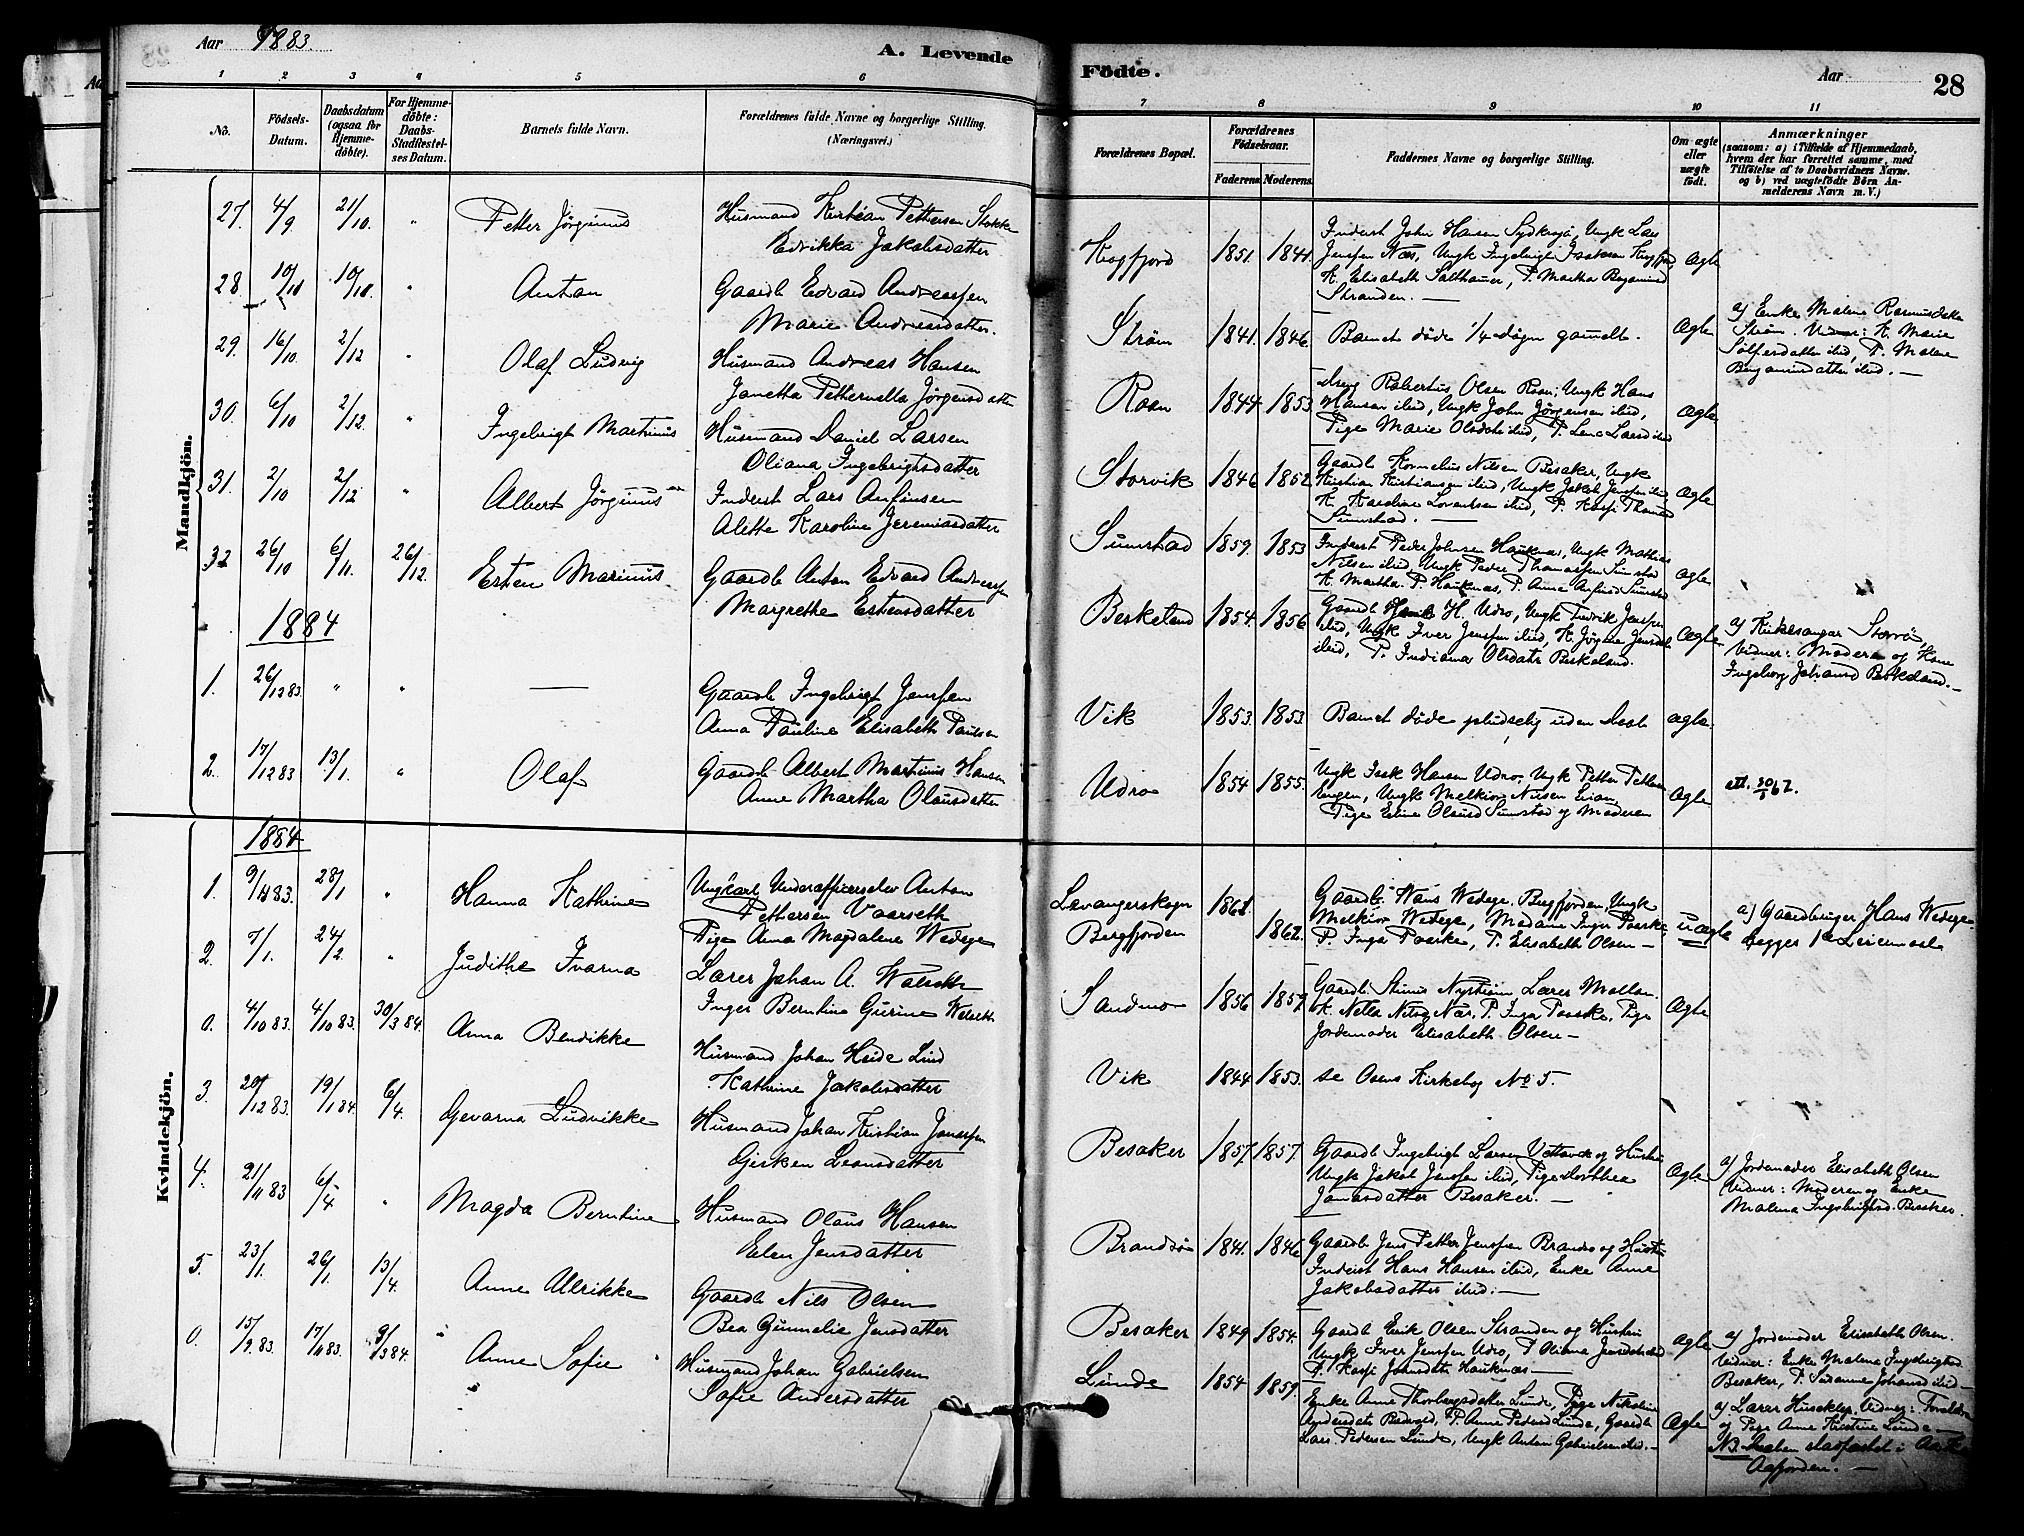 Aar 1883.
A. Levende
1 2 3 4 5 6
No.
Fødsels-Datum.
Daabsdatum (ogsaa for Hjemmedøbte).
For Hjemmedøbte: Daabs-Stadfæstelses Datum.
Barnets fulde Navn.
Forældrenes fulde Navne og borgerlige Stilling.
(Næringsvei.)
Mandkjön.
27. 4/9 21/10. " Petter Jørginus Husmand Kristian Pettersen Stokke
Edvikka Jakobsdatter
28 10/11 10/11. " Anton Gaardb Edvard Andreassen
Marie Andreasdatter.
29. 16/10 2/12 " Olaf Ludvig Husmand Andreas Hansen
Janetha Petternella Jørgensdatter
30. 6/10 2/12. " Ingebrigt Martinus Husmand Daniel Larsen
Oliana Ingebrigtsdatter
31. 2/10 2/12 " Albert Jørginus Inderst Lars Anfinsen
Alette Karoline Jeremiasdatter
32 26/10 6/11. 26/12. Esten Marinus Gaardb Anton Edvard Andreassen
Margrethe Estensdatter
1884
1. 26/12 83. " " — Gaardb Ingebrigt Jenssen
Anna Pauline Elisabeth Paulsen
2. 17/12 83 13/1. " Olaf Gaardb Albert Martinus Hansen
Anne Martha Olausdatter
Kvindekjön.
1884
1. 9/11 83. 28/1 " Hanna Kathrine Ungkarl Underofficerselev Anton
Pettersen Vaarseth
Pige Anna Magdalene Wedege
2. 7/1. 24/2. " Judithe Ivarna Lærer Johan A. Walseth
Inger Berntine Gurine Walseth
0. 4/10 83. 4/10 83. 30/3 84. Anna Bendikke Husmand Johan Heide Lind
Kathrine Jakobsdatter
3. 20/12 83. 19/1 84. 6/4. Gevarna Ludvikke Husmand Johan Kristian Jonassen
Gjerken Leansdatter
4. 21/11 83 6/4 " Magda Berntine Husmand Olaus Hansen
Elen Jensdatter
5. 23/1. 26/1. 13/4. Anne Alvrikke Gaardb Nils Olsen
Bea Gunnelia Jensdatter
0. 15/9 83. 17/9 83. 9/3 84. " Anne Sofie Husmand Johan Gabrielsen
Sofie Andersdatter
Födte.
Aar
28
7 8 9 10 11
Forældrenes Bopæl.
Forældrenes Fødselsaar.
Faderens. Moderens.
Faddernes Navne og borgerlige Stilling.
Om ægte eller uægte født.
Anmærkninger
(saasom: a) i Tilfælde af Hjemmedaab, hvem der har forrettet samme, med Tilføielse af to Daabsvidners Navne. og b) ved uægtefødte Börn Anmelderens Navn m. V.)
Kragfjord 1851. 1844. Inderst John Hansen Sydkrogø, Ungk Lars
Jenssen Næs, Ungk Ingebrigt Isaksen Kragfjord
K. Elisabeth Salthamer, P. Martha Benjamind
Stranden. — ægte
Strøm 1841. 1846. Barnet døde 1/4 døgn gammelt. ægte
a) Enke Malene Rasmusdatter
Strøm. Vidner: K. Marie
Sølfersdatter ibid, P. Malene
Benjaminsdatter ibid. —
Roan 1844 1853 Robertus Olsen Roan, Ungk Hans
Hansen ibid, Ungk John Jørgensen ibid,
Pige Marie Olsdtr ibid, P. Lena Larsd ibid ægte
Storvik 1846 1852 Gaardb Kornelius Nilsen Besaker, Ungk
Kristian Kristiansen ibid, Ungk Jakob Jenssen ibid
K. Karoline Lorentsen ibid, P. Kasfi Thomasd
Sumstad. — ægte
Sumstad 1859. 1853 Inderst Peder Johnsen Hauknes, Ungk Mathias
Nilsen ibid, Ungk Peder Thomassen Sumstad
K. Martha P. Hauknæs, P. Anne Anfinsd Sumstad ægte
Beskeland 1854. 1856 Gaardb H. Udro, Ungk Fredrik Jenssen
ibid, Ungk Iver Jenssen ibid, K. Jørgine Jensdtr
ibid, P. Indiana Olsdatr Beskeland. ægte
a) Kirkesanger Storrø
Vidner: Moderen og Kone
Ingeborg Johansd Beskeland. —
Vik 1853. 1853 Barnet døde pludselig uden Daab ægte.
Udro 1854 1855. Ungk Isak Hansen Udro, Ungk Petter Pettersen
Engen, Ungk Melkior Nilsen Lian,
Pige Eline Olausd Sumstad og Moderen ægte
Levangerskogn
Bergfjorden 1861. 1862. Gaardb: Hans Wedege, Bergfjorden, Ungk
Melkior Wedege, Madame Inger Paaske,
P. Inga Paaske, P. Elisabeth Olsen — uægte
a) Gaardbruger Hans Wedege
begges 1ste Leiermaal
Sandmo 1856 1857. Gaardb: Stinus Nystrøm Lærer Mollan.
K. Netta Nilsdtr Næs, P. Inga Paaske, Pige
Jordemoder Elisabeth Olsen — ægte
Vik 1844 1853. se Osens Kirkebog No 5.
Besaker 1857. 1857. Gaardb Ingebrigt Larsen Vettavik og Hustru
Ungk Jakob Jenssen ibid, Pige Dorthea
Jonasdatter Besaker. — ægte
a) Jordemoder Elisabeth Olsen
Vidner: Moderen og Enke
Malena Ingebrigtsd. Besaker.
Brandsø 1841. 1846 Gaardb Jens Petter Jenssen Brandsø og Hustru
Inderst Hans Hansen ibid, Enke Anne
Jakobsdatter ibid: —
Besaker 1849 1854. Gaardb Erik Olsen Stranden og Hustru
Ungk Iver Jenssen Udro, P. Oliana Jensdtr ibid
P. Kasfi Johnsdtr Hauknæs — ægte
a) Jordemoder Elisabeth Olsen.
Vidner: Enke Malena Ingebrigtsd.
Besaker, P. Susanne Johansd ibid —
Lunde 1854 1859. Enke Anne Thorbergsdatter Lunde, Pige Nikoline
Andersdatr Redvold, P. Anne Pedersd Lunde, Gaardb
Lars Pedersen Lunde, Ungk Anton Gabrielsen ibid. — ægte
a) Lærer Husekløp. Vidner: Forældrene
og Pige Anne Kristine Lunde —
NB Daaben stadfæstet i
Aafjorden. —